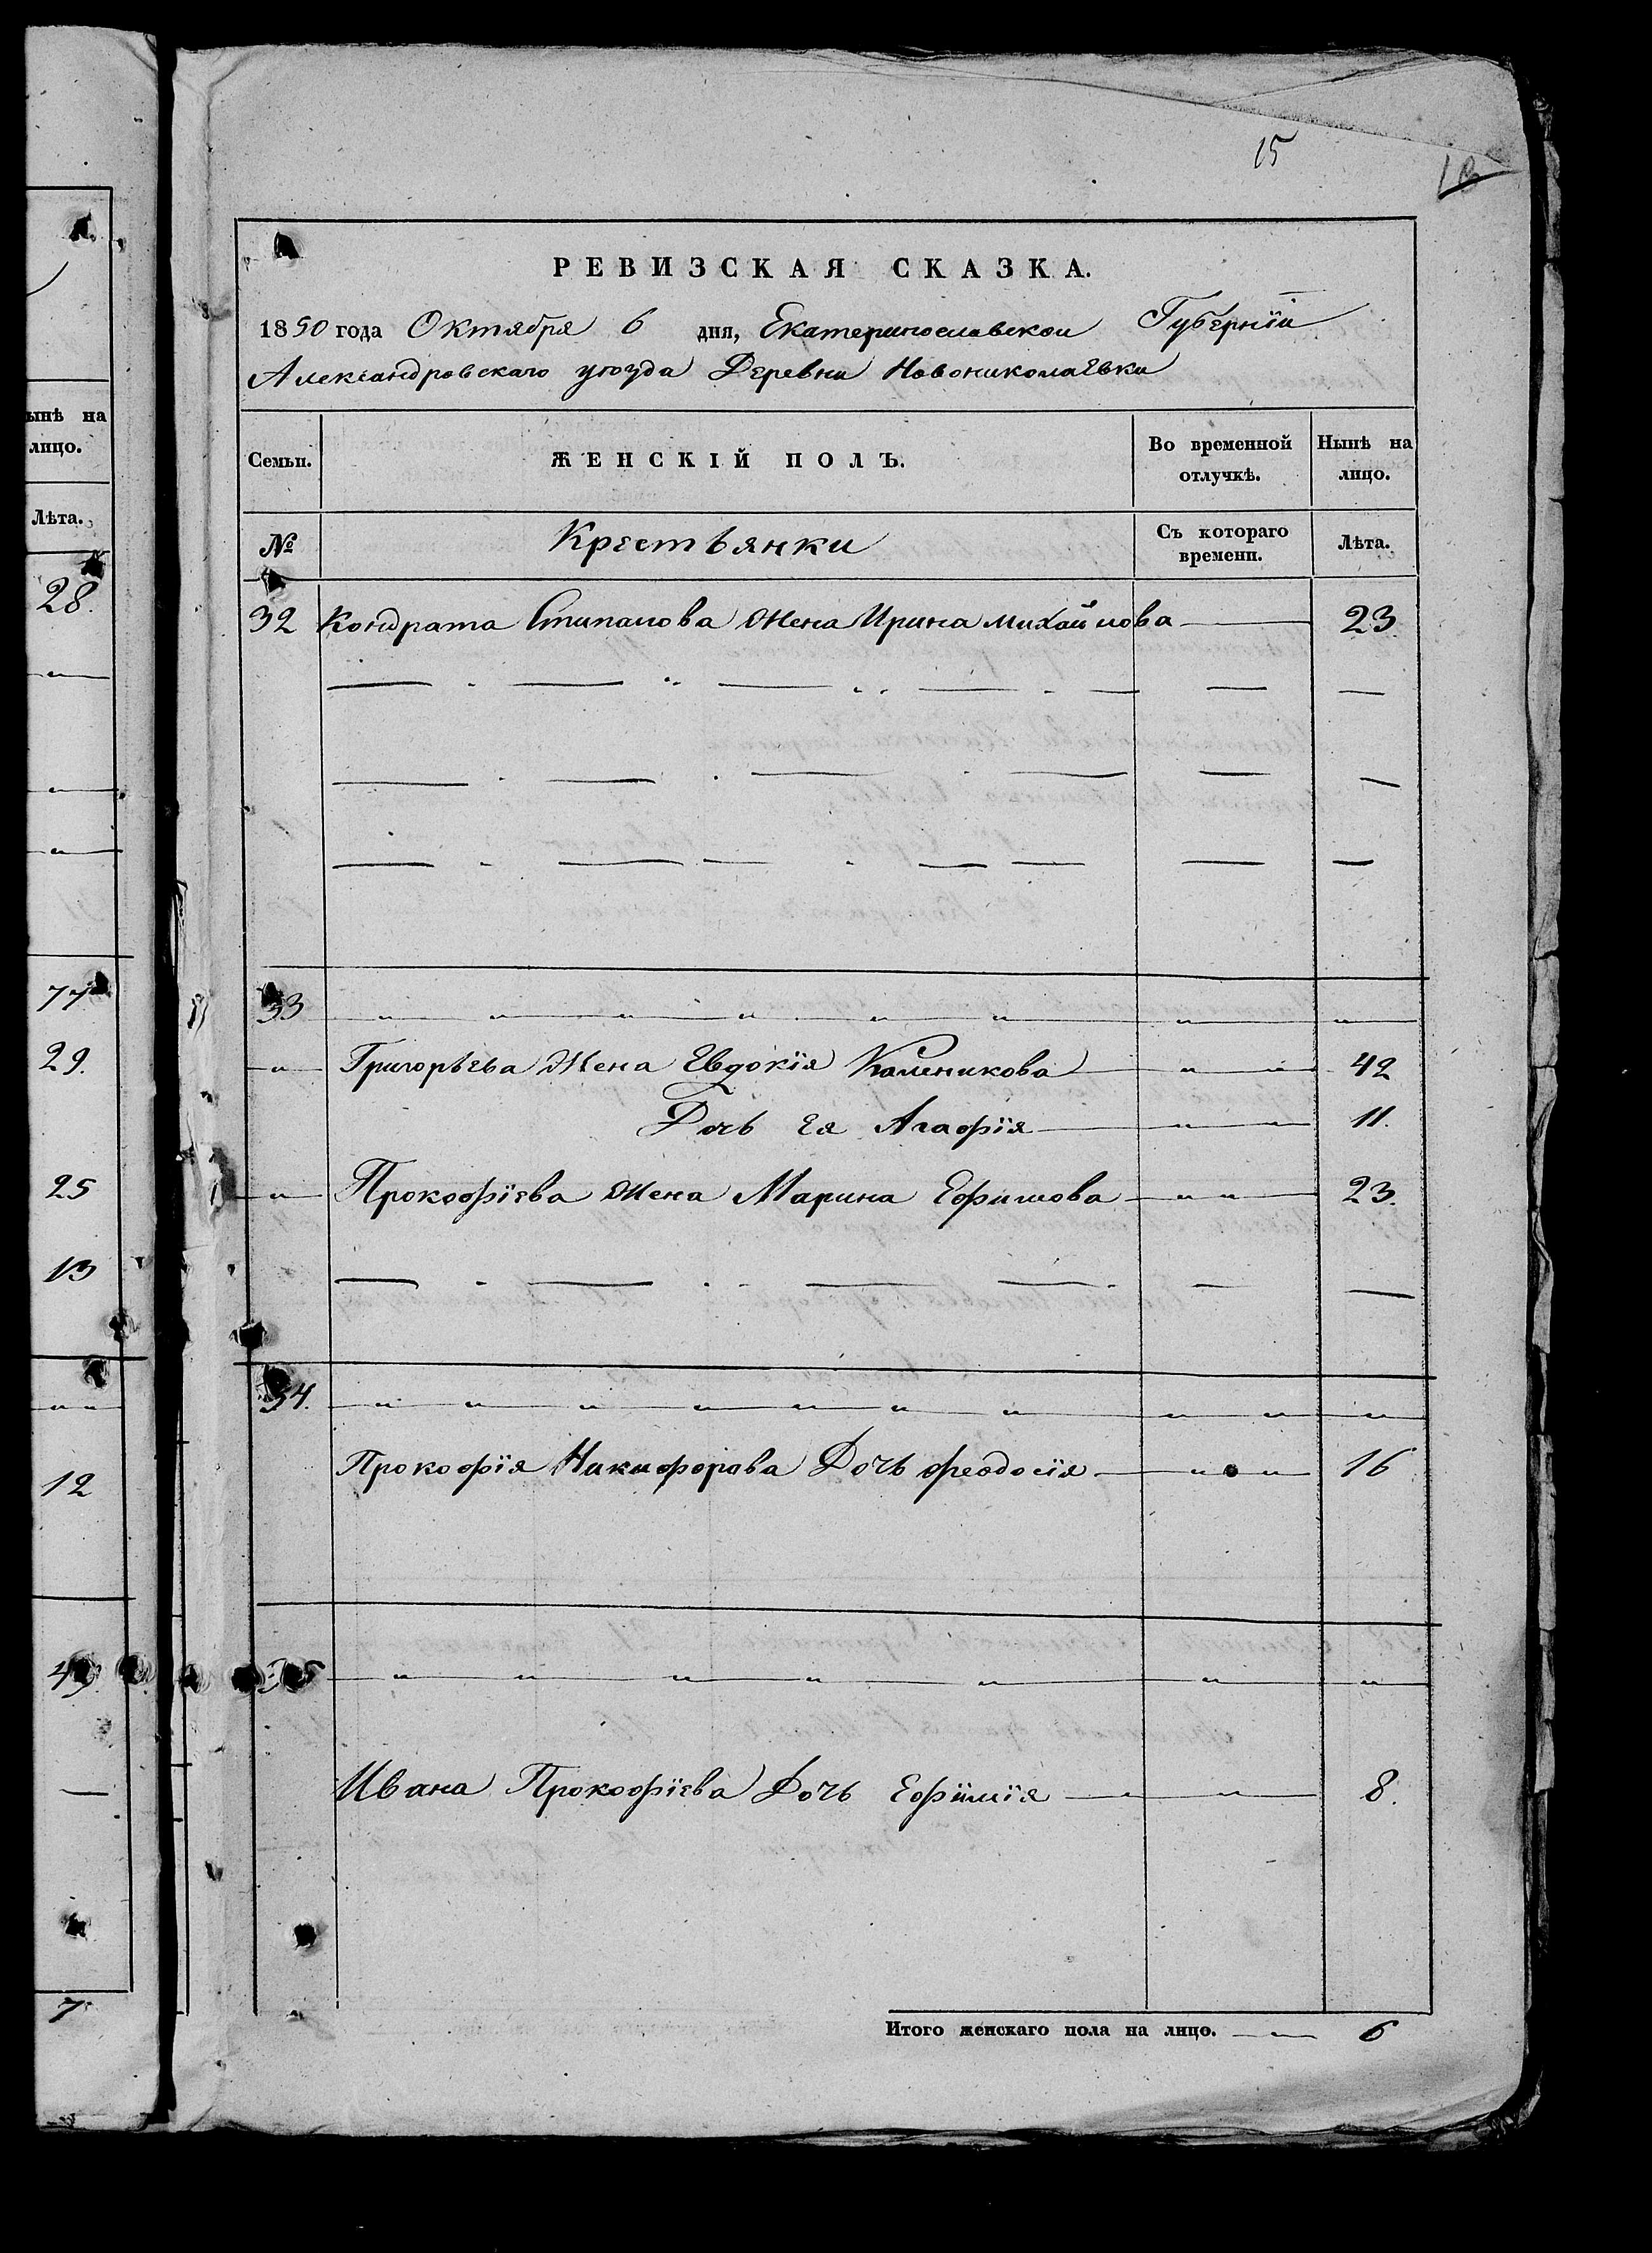 15
РЕВИЗСКАЯ СКАЗКА.
1850 года Октября 6 дня, Екатеринославской Губерніи
Александровскаго уѣзда Деревни Новониколаевки
Семьи. ЖЕНСКІЙ ПОЛЪ. Во временной отлучкѣ. Нынѣ на лицо.
№ Крестьянки Съ котораго времени. Лѣта.
32 Кондрата Стипанова Жена Ирина Михайлова 23
33
Григорьева Жена Евдокія Каленикова 42
Дочь Ея Агафія 11.
Прокофіева Жена Марина Ефимова 23.
34.
Прокофія Никифорова Дочь Феодосія 16
35
Ивана Прокофіева Дочь Ефимія 8.
Итого женскаго пола на лицо. 6
ынѣ на
лицо.
Лѣта.
28.
77
29.
25
13
12
49
7